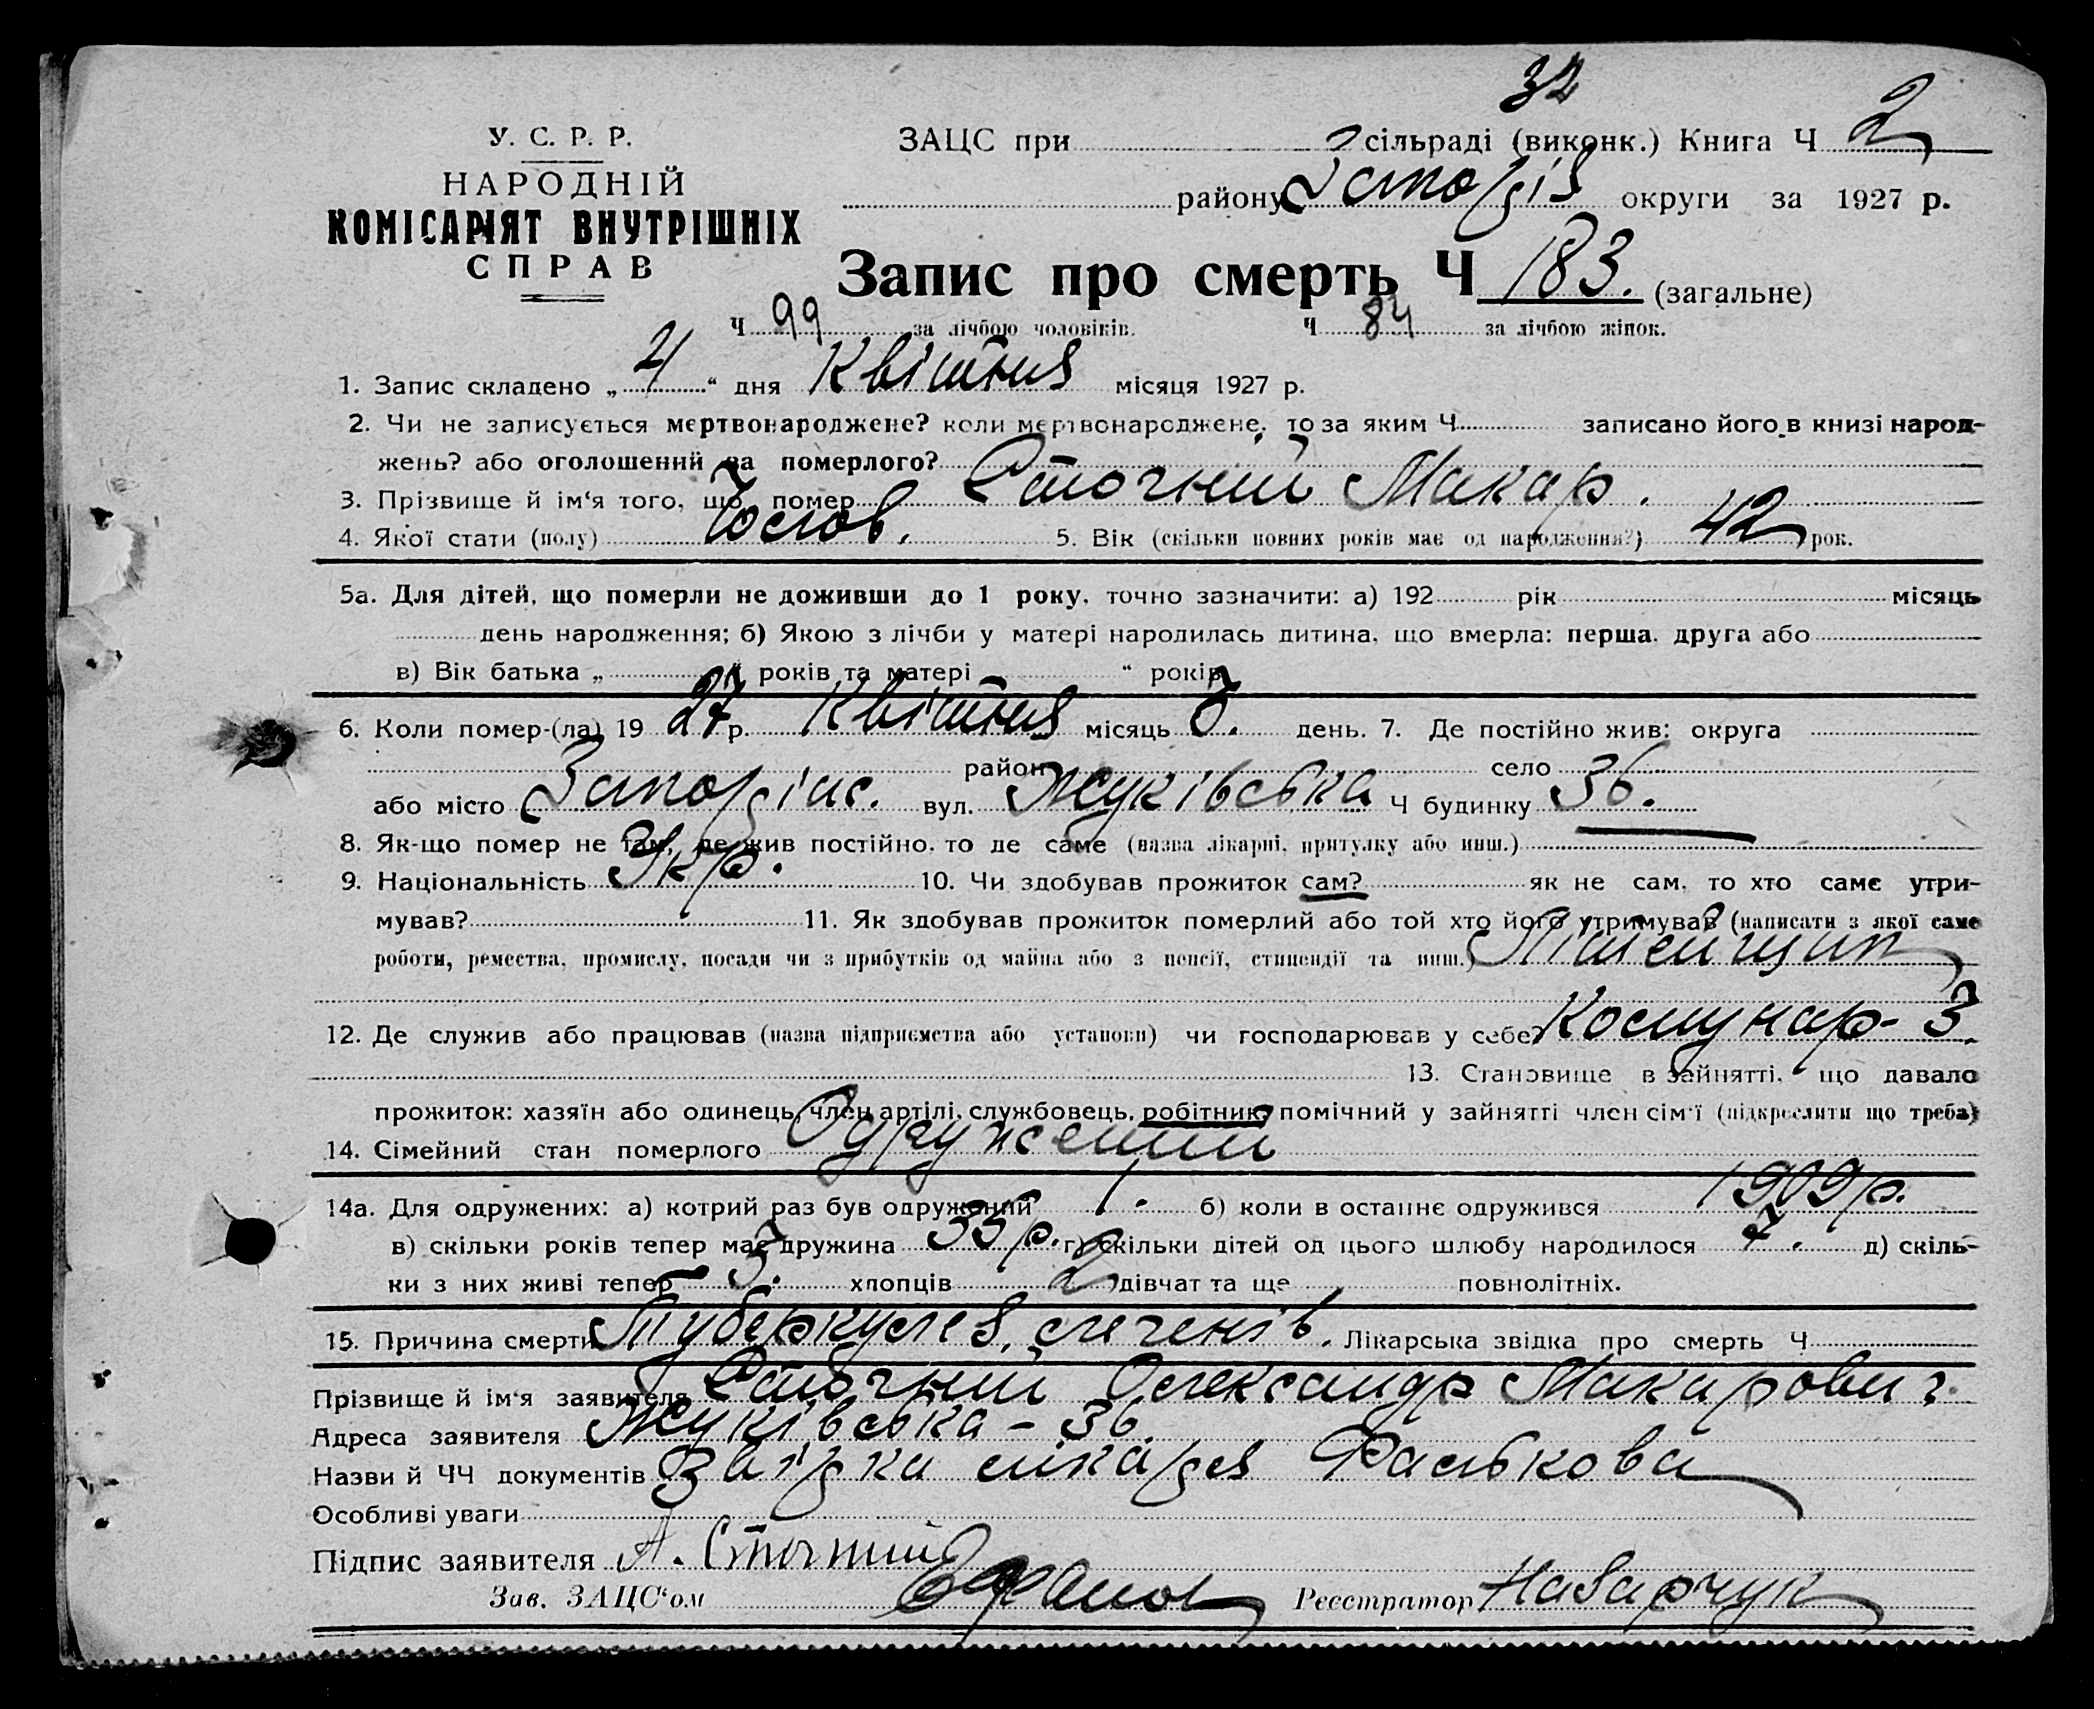 32
У. С. Р. Р.
ЗАЦС при сільраді (виконк.) Книга Ч 2
НАРОДНІЙ
району Запоріз округи за 1927 р.
КОМІСАРІЯТ ВНУТРІШНІХ
СПРАВ
Запис про смерть Ч 183. (загальне)
Ч 99 за лічбою чоловіків. Ч 84 за лічбою жінок.
1. Запис складено „ 4 “ дня Квітня місяця 1927 р.
2. Чи не записується мертвонароджене? коли мертвонароджене, то за яким Ч записано його в книзі народ-
жень? або оголошений за померлого?
3. Прізвище й ім‘я того, що помер Сточний Макар.
4. Якої стати (полу) Чолов. 5. Вік (скільки повних років має од народження?) 42 рок.
5а. Для дітей, що померли не доживши до 1 року, точно зазначити: а) 192 рік місяць
день народження; б) Якою з лічби у матері народилась дитина, що вмерла: перша, друга або
в) Вік батька „ “ років та матері “ років
6. Коли помер-(ла) 19 27 р. Квітня місяць 3. день. 7. Де постійно жив: округа
район село
або місто Запоріжж. вул. Жуківська Ч будинку 36.
8. Як-що помер не там, де жив постійно, то де саме (назва лікарні, притулку або инш.)
9. Національність Укр. 10. Чи здобував прожиток сам? як не сам, то хто саме утри-
мував? 11. Як здобував прожиток померлий або той хто його утримував (написати з якої саме
роботи, ремества, промислу, посади чи з прибутків од майна або з пенсії, стипендії та инш.)
12. Де служив або працював (назва підприємства або установи) чи господарював у себе? Комунар-З.
13. Становище в зайнятті, що давало
прожиток: хазяїн або одинець, член артілі, службовець, робітник, помічний у зайнятті член сім‘ї (підкреслити що треба)
14. Сімейний стан померлого Одружений
14а. Для одружених: а) котрий раз був одружений 1. б) коли в останнє одружився 1909 р.
в) скільки років тепер має дружина 35 р. г) скільки дітей од цього шлюбу народилося 7. д) скіль-
ки з них живі тепер 3. хлопців 2 дівчат та ще повнолітніх.
15. Причина смерти Туберкулез легенів. Лікарська звідка про смерть Ч
Прізвище й ім‘я заявителя Сточний Олександр Макарович.
Адреса заявителя Жуківська - 36.
Назви й ЧЧ документів лікаря Фалькова
Особливі уваги
Підпис заявителя А. Сточний
Зав. ЗАЦС‘ом Реєстратор Назарчук